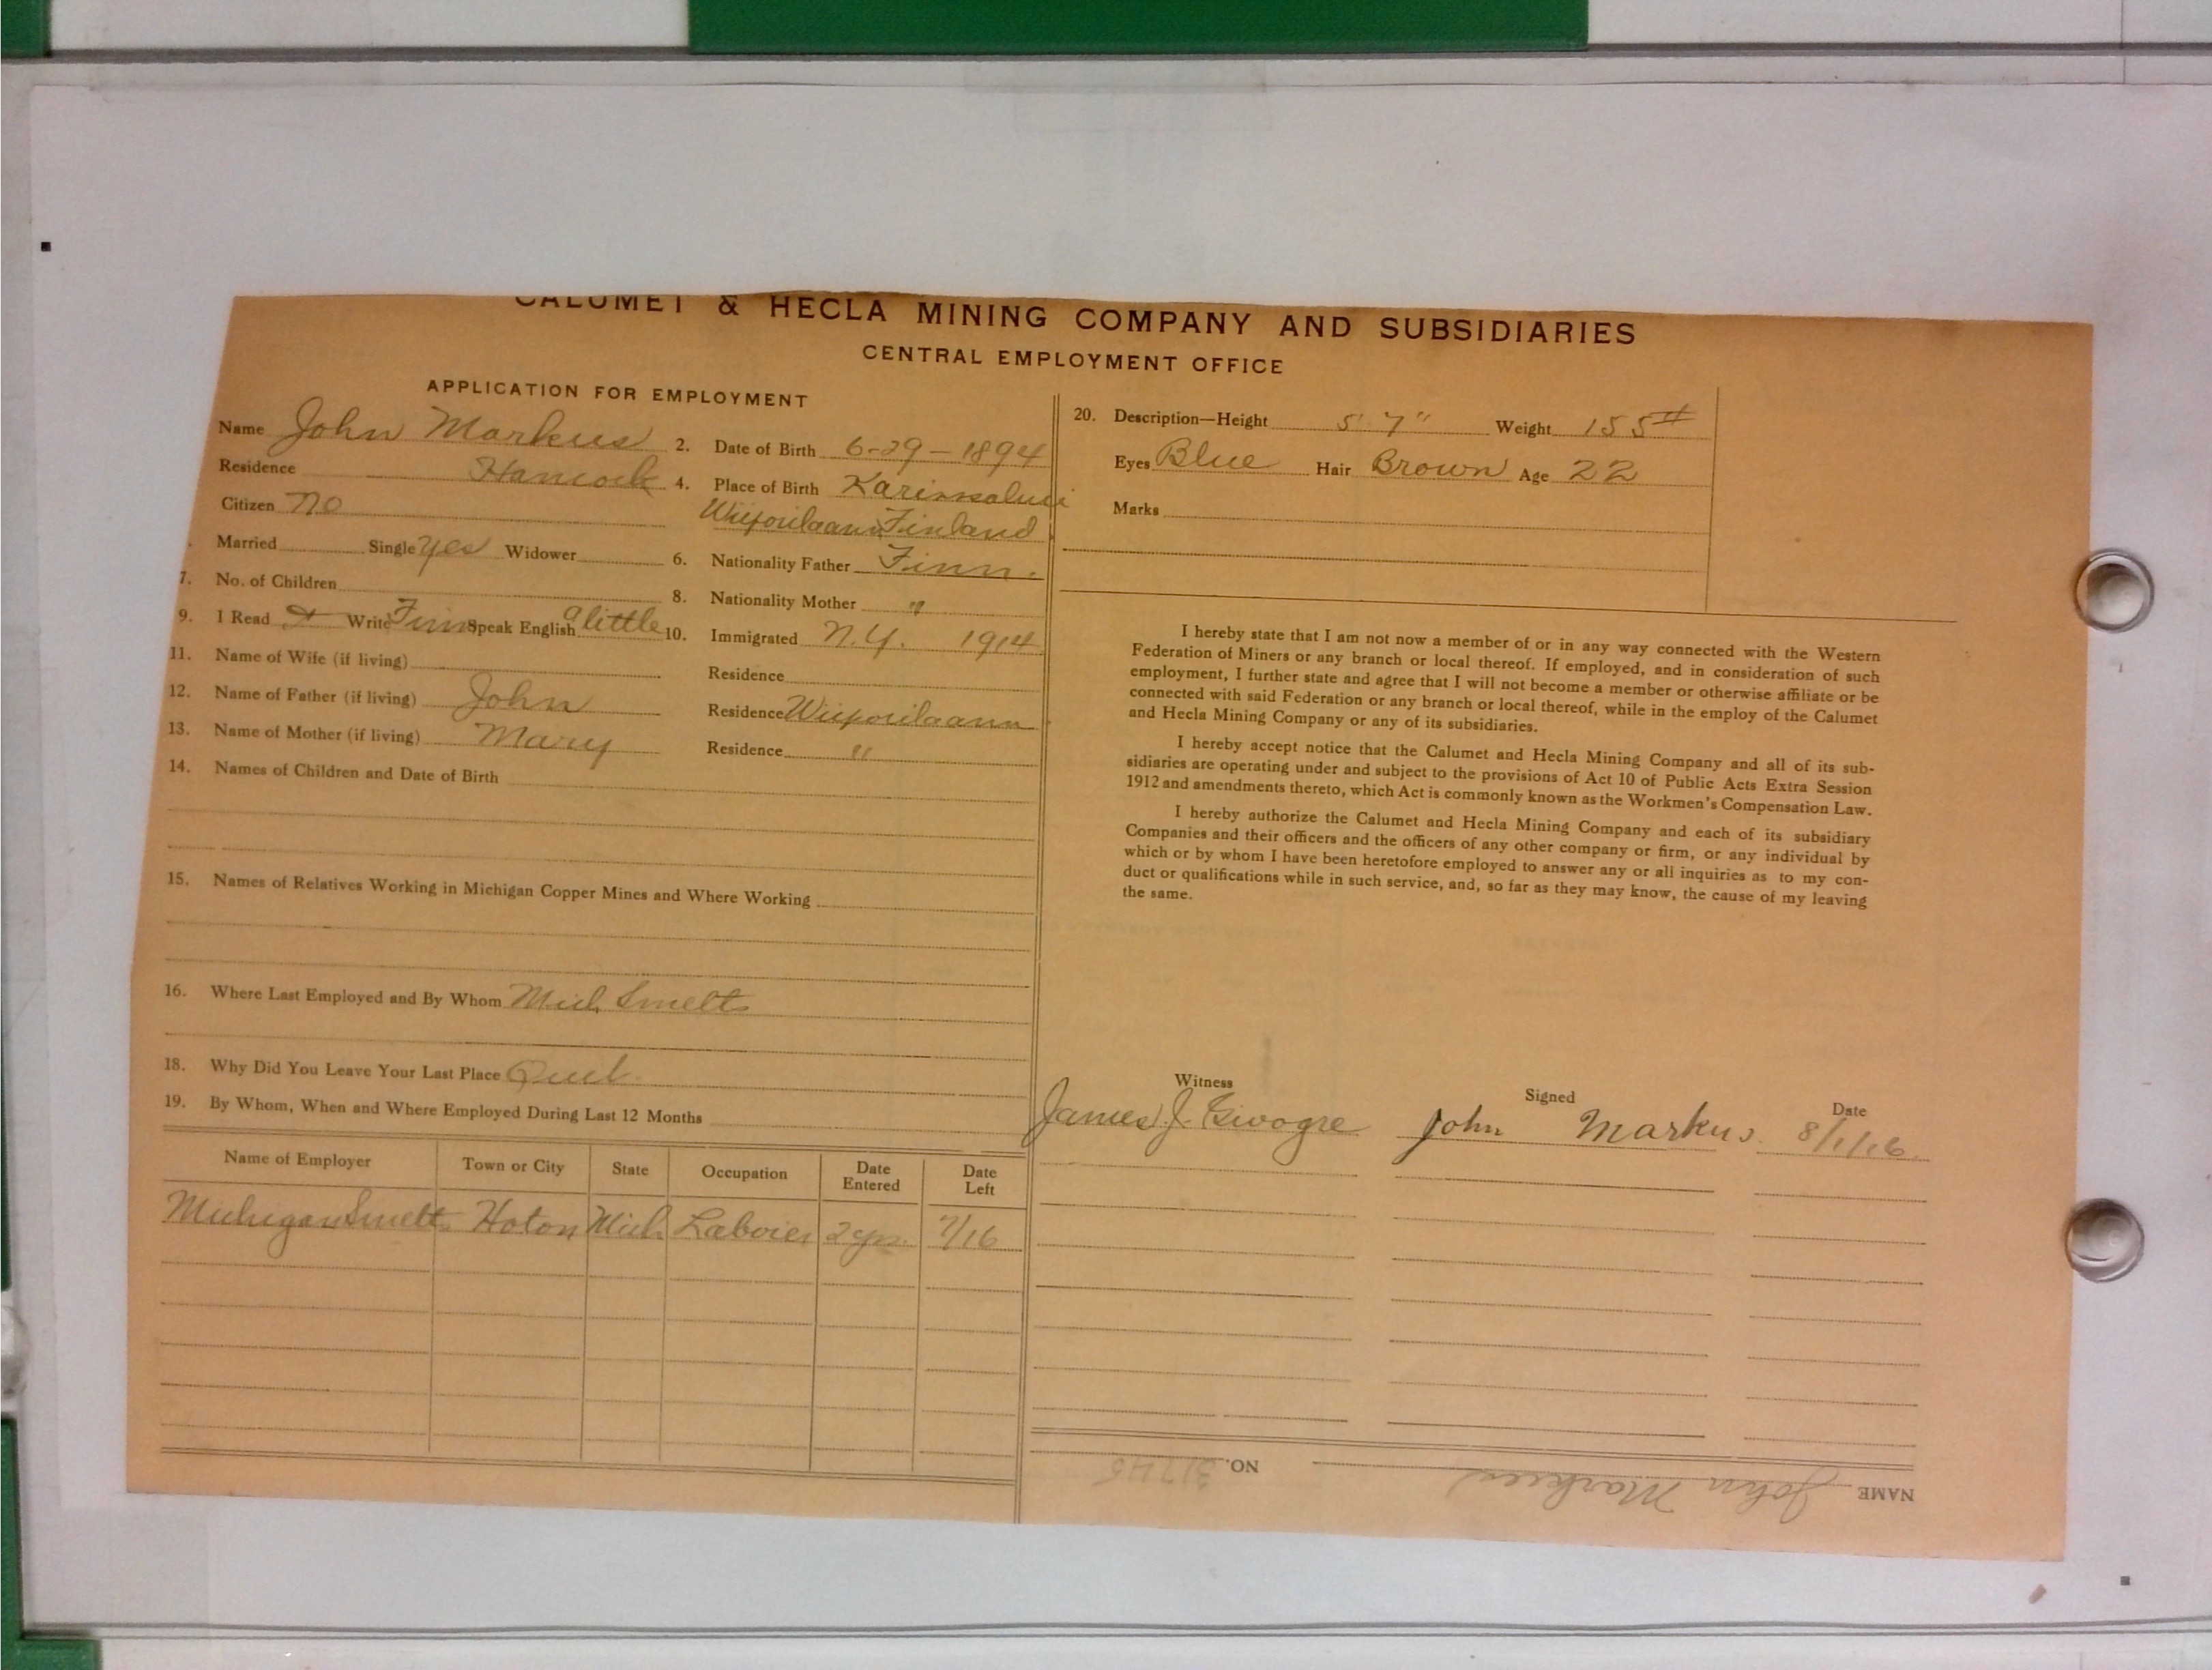 CALUMET & HECLA MINING COMPANY AND SUBSIDIARIES
CENTRAL EMPLOYMENT OFFICE
APPLICATION FOR EMPLOYMENT
Name John Markus
2. Date of Birth 6-29-1894
Residence Hancock
4. Place of Birth
Finland
Citizen no
Married Single Yes Widower
6. Nationality Father Finn.
7. No. of Children
8. Nationality Mother "
9. I Read & Write Finn Speak English a little
10. Immigrated N.Y. 1914
11. Name of Wife (if living) Residence
12. Name of Father (if living) John Residence
13. Name of Mother (if living) Mary Residence "
14. Names of Children and Date of Birth
15. Names of Relatives Working in Michigan Copper Mines and Where Working
16. Where Last Employed and By Whom Mich. Smelt.
18. Why Did You Leave Your Last Place Quit.
19. By Whom, When and Where Employed During Last 12 Months
Name of Employer Town or City State Occupation Date Entered Date Left
Michigan Smelt. Hoton Mich. Laborer 2 yrs. 7/16
20. Description—Height 5' 7" Weight 155#
Eyes Blue Hair Brown Age 22
Marks
I hereby state that I am not now a member of or in any way connected with the Western
Federation of Miners or any branch or local thereof. If employed, and in consideration of such
employment, I further state and agree that I will not become a member or otherwise affiliate or be
connected with said Federation or any branch or local thereof, while in the employ of the Calumet
and Hecla Mining Company or any of its subsidiaries.
I hereby accept notice that the Calumet and Hecla Mining Company and all of its sub-
sidiaries are operating under and subject to the provisions of Act 10 of Public Acts Extra Session
1912 and amendments thereto, which Act is commonly known as the Workmen's Compensation Law.
I hereby authorize the Calumet and Hecla Mining Company and each of its subsidiary
Companies and their officers and the officers of any other company or firm, or any individual by
which or by whom I have been heretofore employed to answer any or all inquiries as to my con-
duct or qualifications while in such service, and, so far as they may know, the cause of my leaving
the same.
Witness Signed Date
James J. John Markus 8/1/16.
NAME John Markus NO. 31745